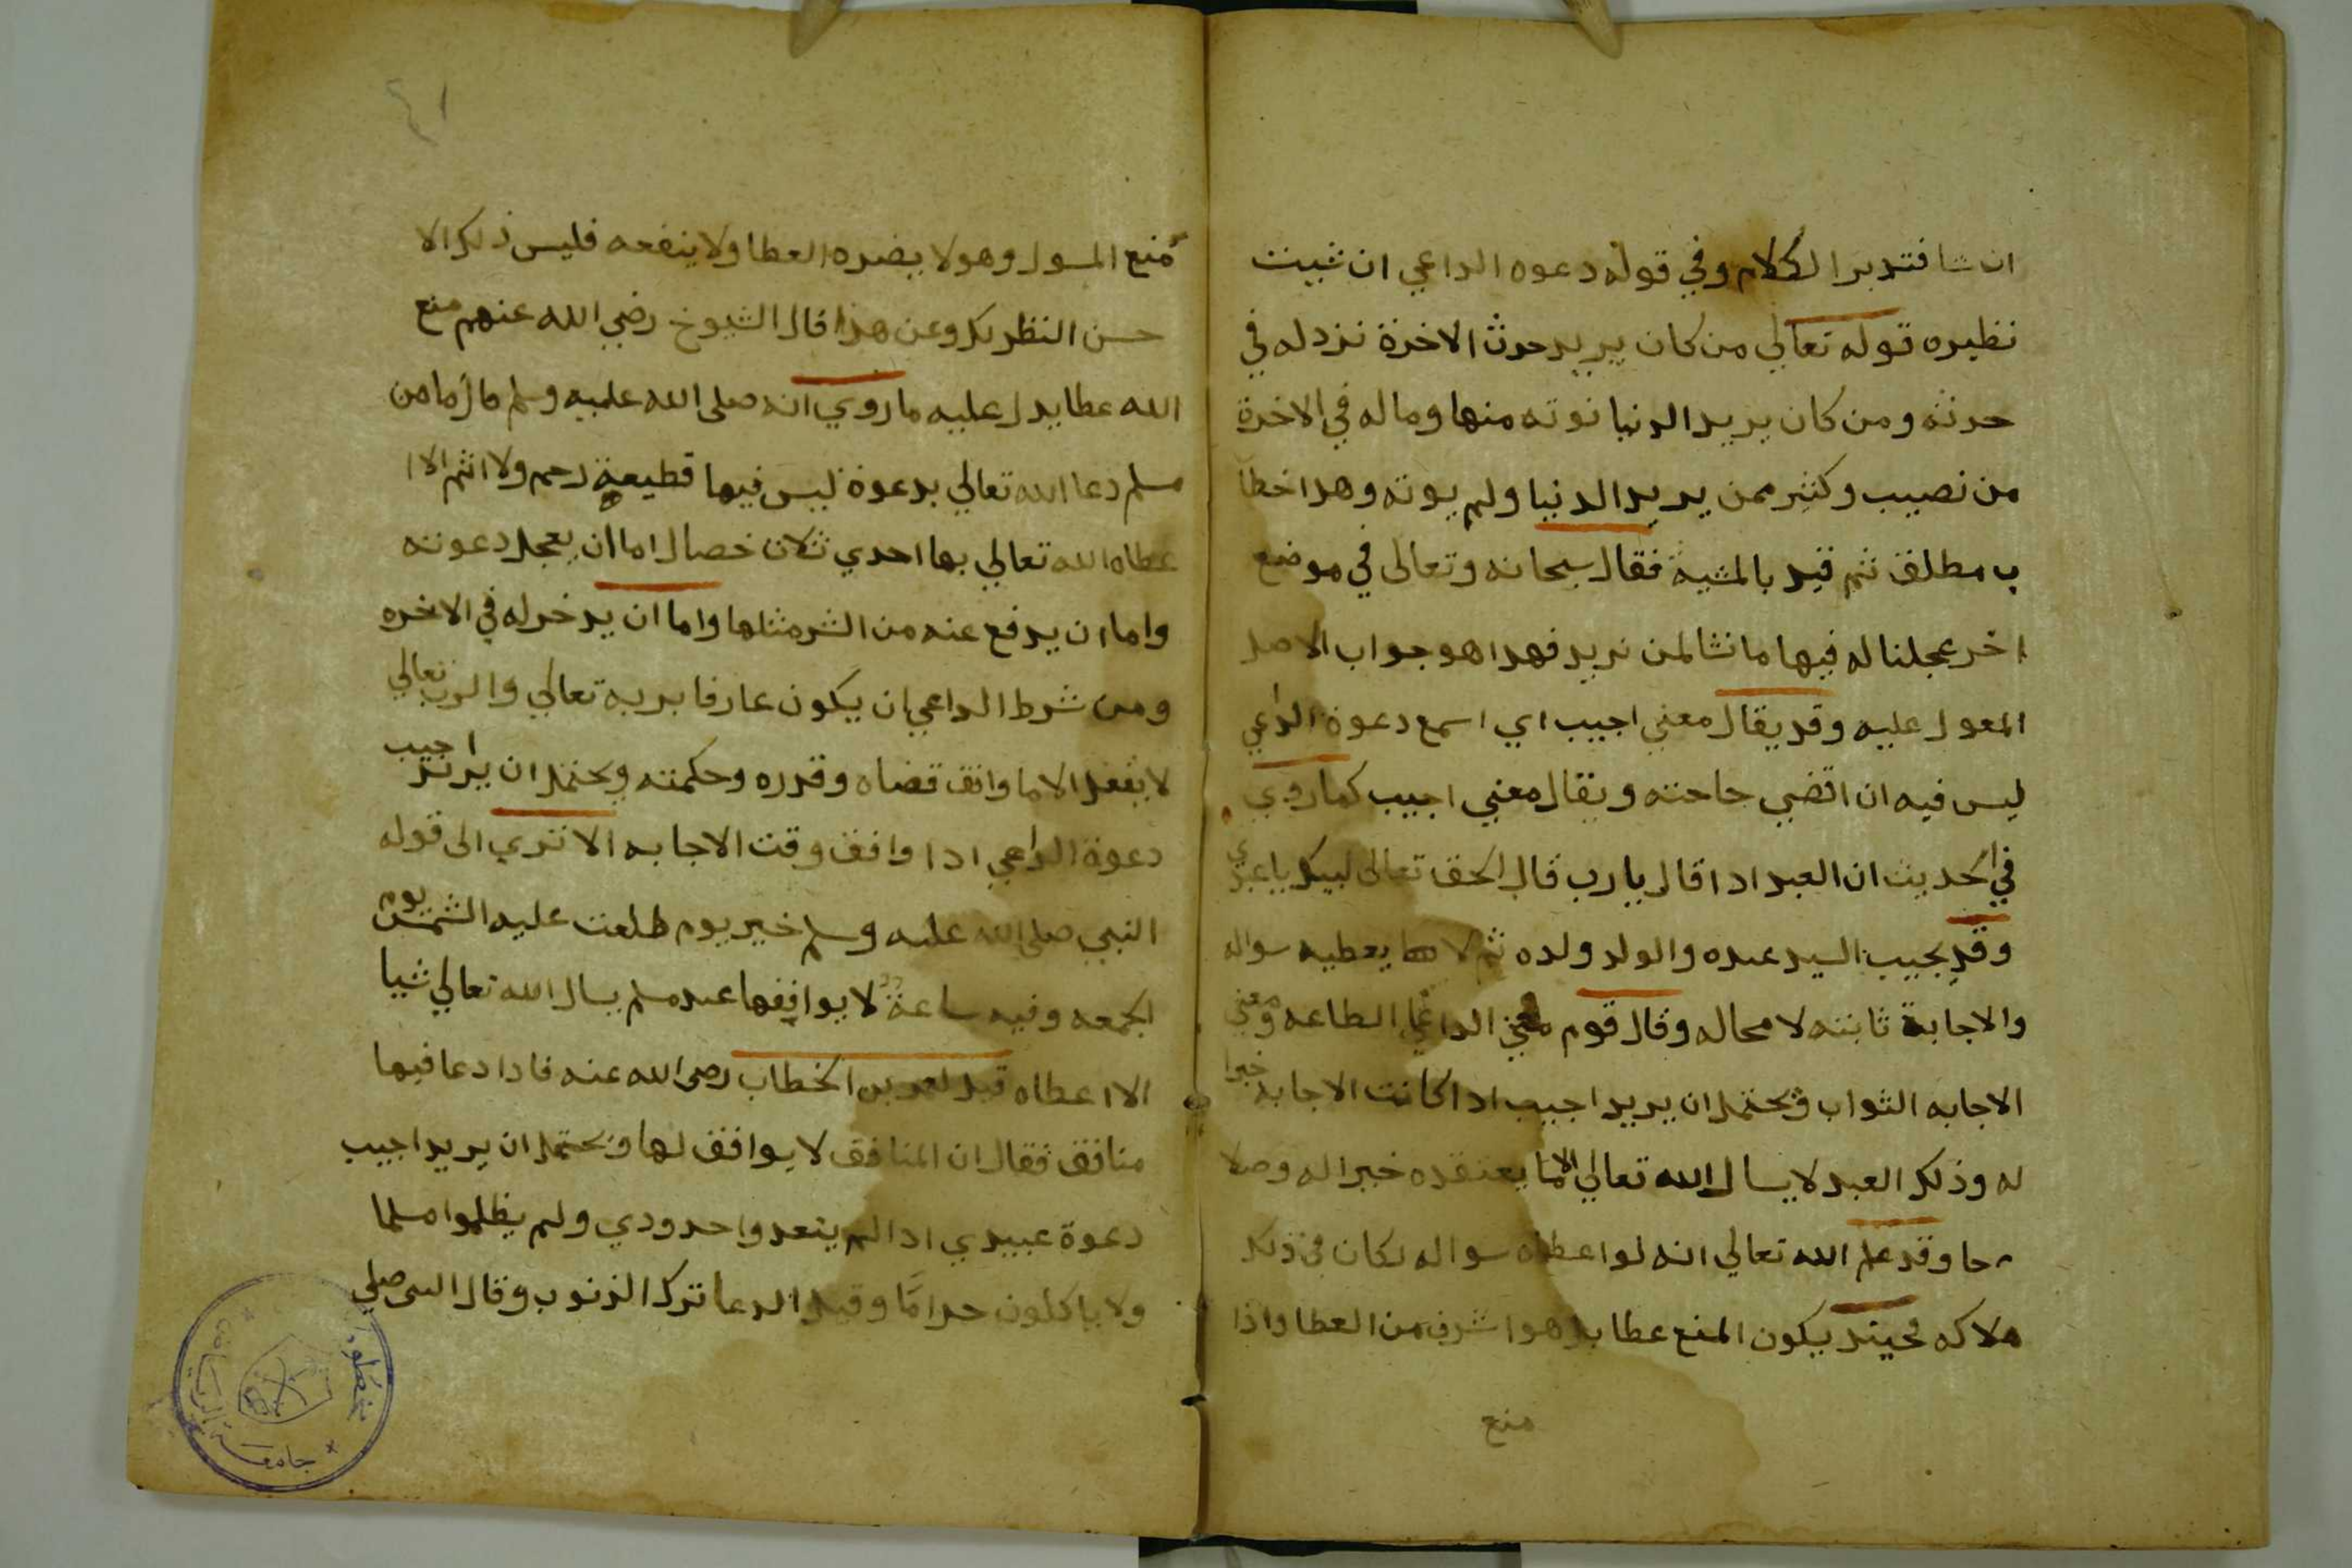 ان شا فتدبر الكلام وفي قوله دعوه الداعي ان شيت
نظيره قوله تعالي من كان يريد حرث الاخرة نزد له في
حرثه ومن كان يريد الدنيا نوته منها وماله في الاخرة
من نصيب وكثير ممن يريد الدنيا ولم يوته وهدا خطا
ب مطلق ثم قيد بالمشية فقال سبحانه وتعالى في موضع
اخر عجلنا له فيها ما نشا لمن نريد فهدا هو جواب الاصل
المعول عليه وقد يقال معني اجيب اي اسمع دعوة الداعي
ليس فيه ان اقضي حاجته ويقال معني اجيب كما روي
في الحديث ان العبد ادا قال يا رب قال الحق تعالى لبيك يا عبدي
وقد يجيب السيد عبده والولد ولده ثم لا يعطيه سواله
والاجابة ثابته لا محاله وقال قوم معني الدعا الطاعه ومعني
الاجابه الثواب ويحتمل ان يريد اجيب ادا كانت الاجابه خيرا
له وذلك العبد لا يسال الله تعالي الا ما يعتقده خيرا له وصلا
حا وقد علم الله تعالي انه لو اعطاه سواله لكان في ذلك
هلاكه فحيند يكون المنع عطا بل هو اشرف من العطا واذا
منع
٤١
منع المسول وهو لا يضره العطا ولا ينفعه فليس ذلك الا
حسن النظر بك وعن هذا قال الشيوخ رضي الله عنهم منع
الله عطا يدل عليه ما روي انه صلى الله عليه وسلم قال ما من
مسلم دعا الله تعالي بدعوة ليس فيها قطيعة رحم ولا اثم الا ا
عطاه الله تعالي بها احدي ثلاث خصال اما ان يعجل دعوته
واما ان يدفع عنه من الشر مثلها واما ان يدخر له في الاخره
ومن شرط الداعي ان يكون عارفا بربه تعالي والرب تعالي
لا يفعل الا ما وافق قضاه وقدره وحكمته ويحتمل ان يريد اجيب
دعوة الداعي ادا وافق وقت الاجابه الا تري الى قوله
النبي صلى الله عليه وسلم خير يوم طلعت عليه الشمس يوم
الجمعه وفيه ساعة لا يوافقها عبد مسلم يسال الله تعالي شيا
الا اعطاه قيل لعمر بن الخطاب رضى الله عنه فادا دعا فيها
منافق فقال ان المنافق لا يوافق لها ويحتمل ان يريد اجيب
دعوة عبيدي ادا لم يتعدوا حدودي ولم يظلموا مسلما
ولا ياكلون حراما وقيل الدعا ترك الذنوب وقال النبى صلي
مخطوطات
جامعة الرياض